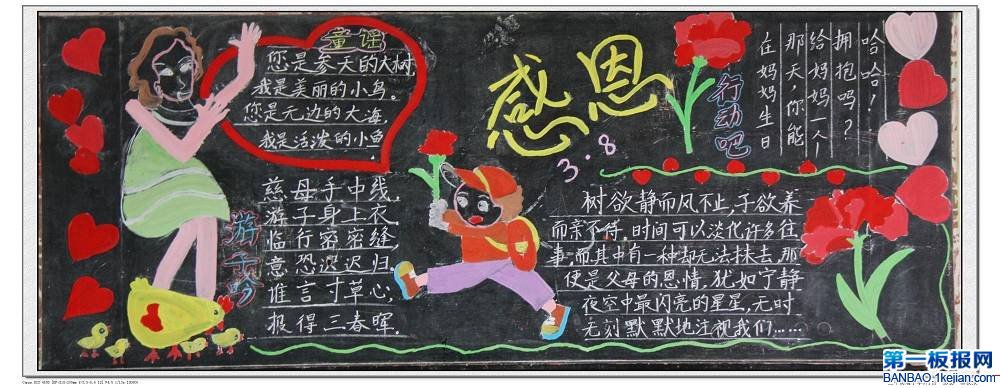 童谣
您是参天的大树,
我是美丽的小鸟。
您是无边的大海,
我是活泼的小鱼
游子吟
慈母手中线,
游子身上衣
临行密密缝,
意恐迟迟归.
谁言寸草心,
报得三春晖.
感恩
3.8
行动吧
在妈妈生日
那天,你能
给妈妈一个
拥抱吗?
哈哈!
树欲静而风不止,子欲养
而亲不待.时间可以淡化许多往
事.而其中有一种却无法抹去,那
便是父母的恩情,犹如宁静
夜空中最闪亮的星星,无时
无刻默默地注视我们……
第一板报网
BANBAO.1kejian.com